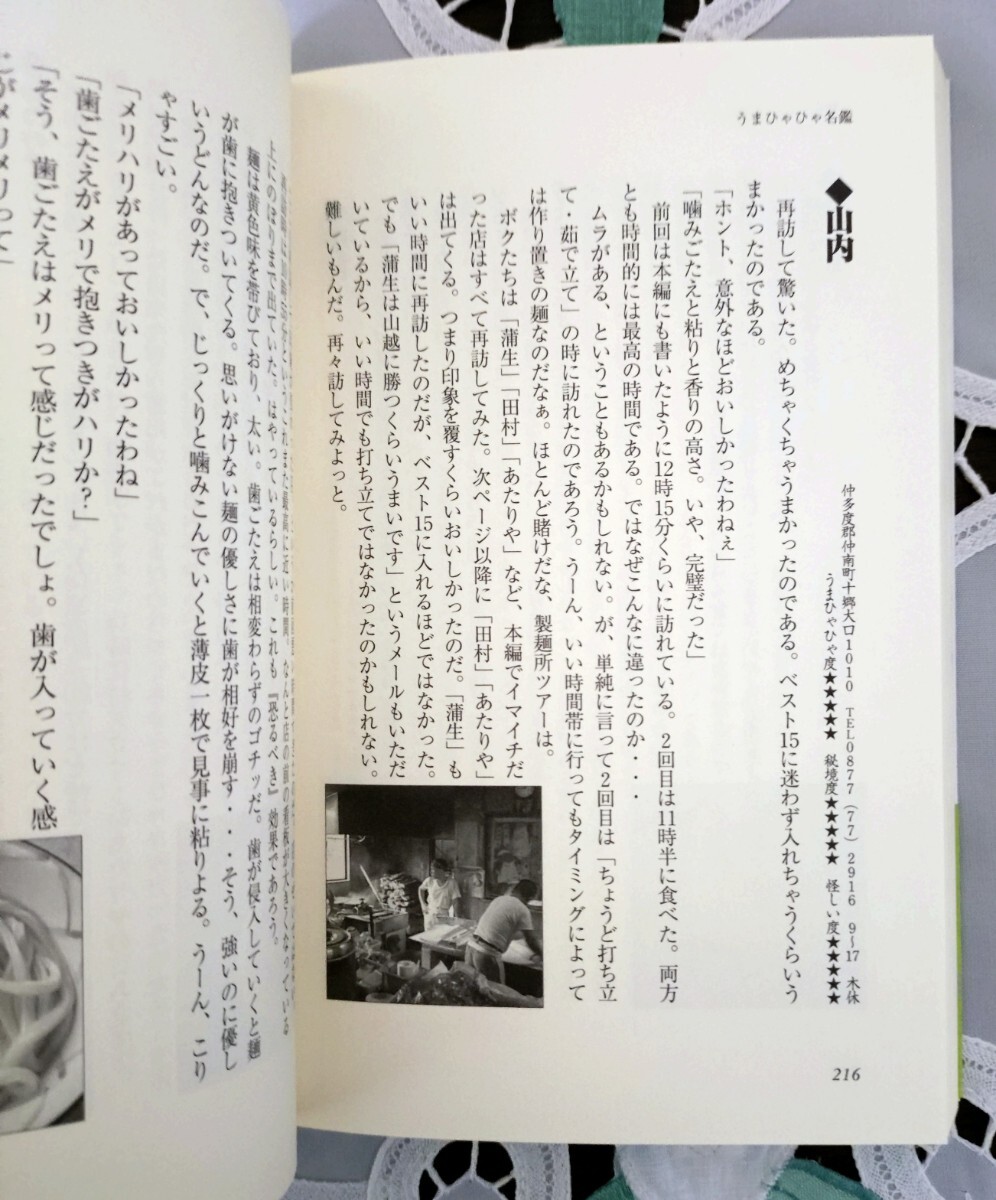 うまひゃひゃ名鑑
◆山内
仲多度郡仲南町十郷大口1010 TEL0877(77)2916 9〜17 木休
うまひゃひゃ度★★★★★ 秘境度★★★★★ 怪しい度★★★★★
再訪して驚いた。めちゃくちゃうまかったのである。ベスト15に迷わず入れちゃうくらいう
まかったのである。
「ホント、意外なほどおいしかったわねぇ」
「噛みごたえと粘りと香りの高さ。いや、完璧だった」
前回は本編にも書いたように12時15分くらいに訪れている。2回目は11時半に食べた。両方
とも時間的には最高の時間である。ではなぜこんなに違ったのか・・・
ムラがある、ということもあるかもしれない。が、単純に言って2回目は「ちょうど打ち立
て・茹で立て」の時に訪れたのであろう。うーん、いい時間帯に行ってもタイミングによって
は作り置きの麺なのだなぁ。ほとんど賭けだな、製麺所ツアーは。
ボクたちは「蒲生」「田村」「あたりや」など、本編でイマイチだ
った店はすべて再訪してみた。次ページ以降に「田村」「あたりや」
は出てくる。つまり印象を覆すくらいおいしかったのだ。「蒲生」も
いい時間に再訪したのだが、ベスト15に入れるほどではなかった。
でも「蒲生は山越に勝つくらいうまいです」というメールもいただ
いているから、いい時間でも打ち立てではなかったのかもしれない。
難しいもんだ。再々訪してみよっと。
216
というこれまた最高に近い時間。なんと店の前の看板が大きくなっている
上にのぼりまで出ていた。はやっているらしい。これも『恐るべき』効果であろう。
麺は黄色味を帯びており、太い。歯ごたえは相変わらずのゴチッだ。歯が侵入していくと麺
が歯に抱きついてくる。思いがけない麺の優しさに歯が相好を崩す・・・そう、強いのに優し
いうどんなのだ。で、じっくりと噛みこんでいくと薄皮一枚で見事に粘りよる。うーん、こり
ゃすごい。
「メリハリがあっておいしかったわね」
「歯ごたえがメリで抱きつきがハリか?」
「そう、歯ごたえはメリって感じだったでしょ。歯が入っていく感
じがメリメリって」